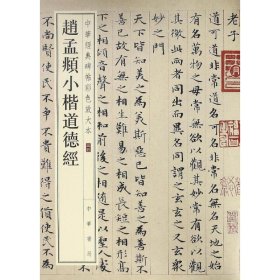 老子
道可道非常道名可名非常名無名天地之始
有名萬物之母常無欲以觀其妙常有欲以觀
其徼此兩者同出而異名同謂之玄玄之又玄衆
妙之門
天下皆知美之為美斯惡已皆知善之為善斯不
善已故有無之相生難易之相成長短之相形
是以聖人
中華經典碑帖彩色放大本
趙孟頫小楷道德經
中華書局
不尚賢使民不爭不貴難得之貨使民不